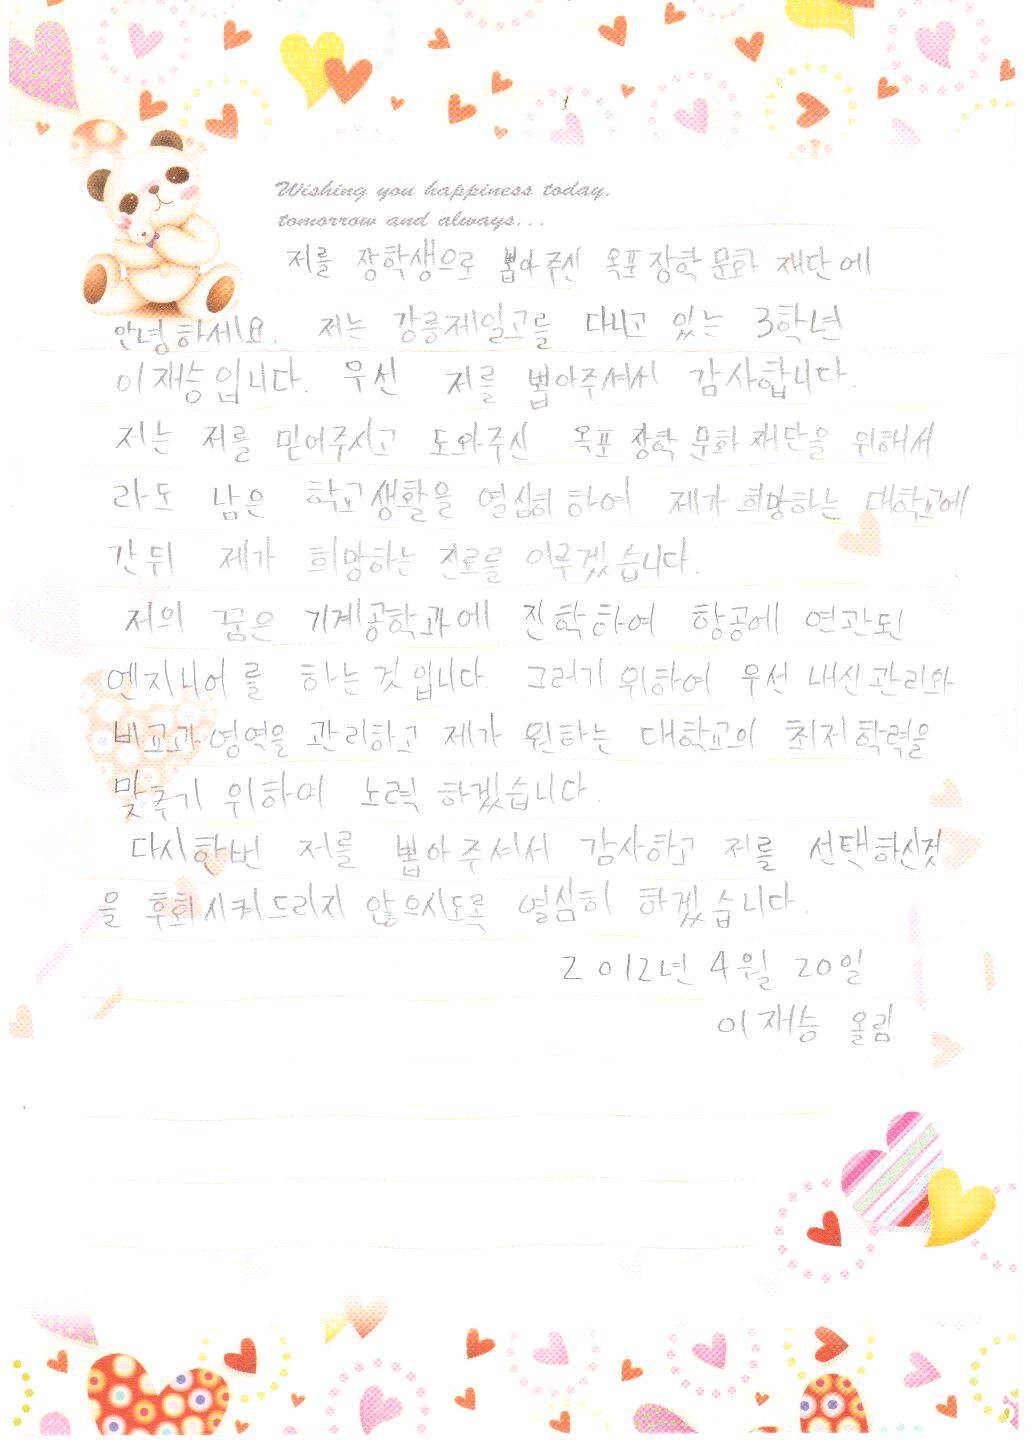 Wishing you happiness today,
tomorrow and always...
저를 장학생으로 뽑아주신 옥포 장학 문화 재단에
안녕하세요. 저는 강릉제일고를 다니고 있는 3학년
이재승입니다. 우선 저를 뽑아주셔서 감사합니다.
저는 저를 믿어주시고 도와주신 옥포 장학 문화 재단을 위해서
라도 남은 학교생활을 열심히 하여 제가 희망하는 대학교에
간 뒤 제가 희망하는 진로를 이루겠습니다.
저의 꿈은 기계공학과에 진학하여 항공에 연관된
엔지니어를 하는것 입니다. 그러기 위하여 우선 내신관리와
비교과영역을 관리하고 제가 원하는 대학교의 최저학력을
맞추기 위하여 노력 하겠습니다.
다시한번 저를 뽑아주셔서 감사하고 저를 선택하신것
을 후회시켜드리지 않으시도록 열심히 하겠습니다.
2012년 4월 20일
이재승 올림